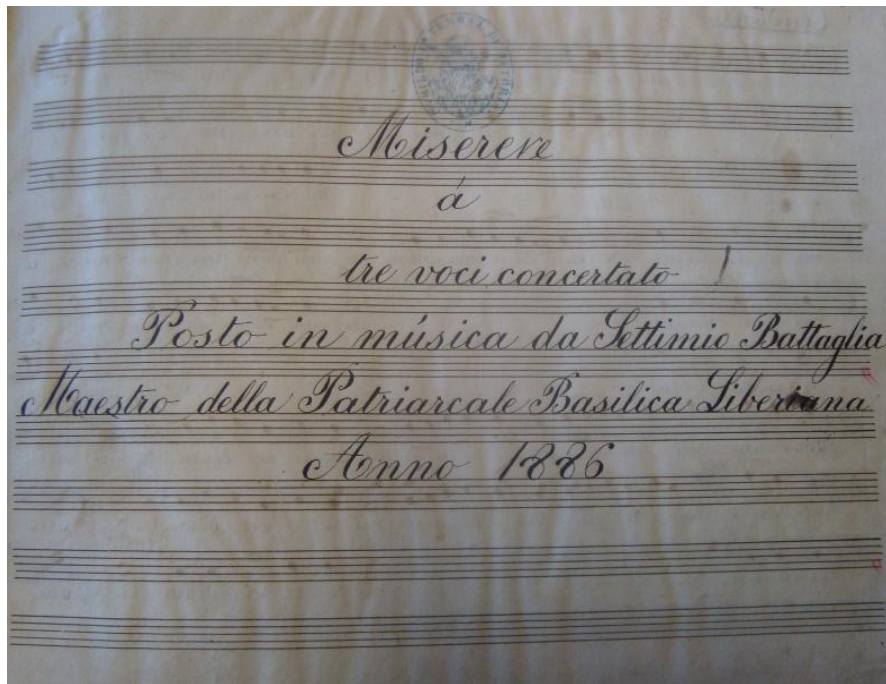 Miserere
á
tre voci concertato
Posto in música da Settimio Battaglia
Maestro della Patriarcale Basilica Liberiana
Anno 1886